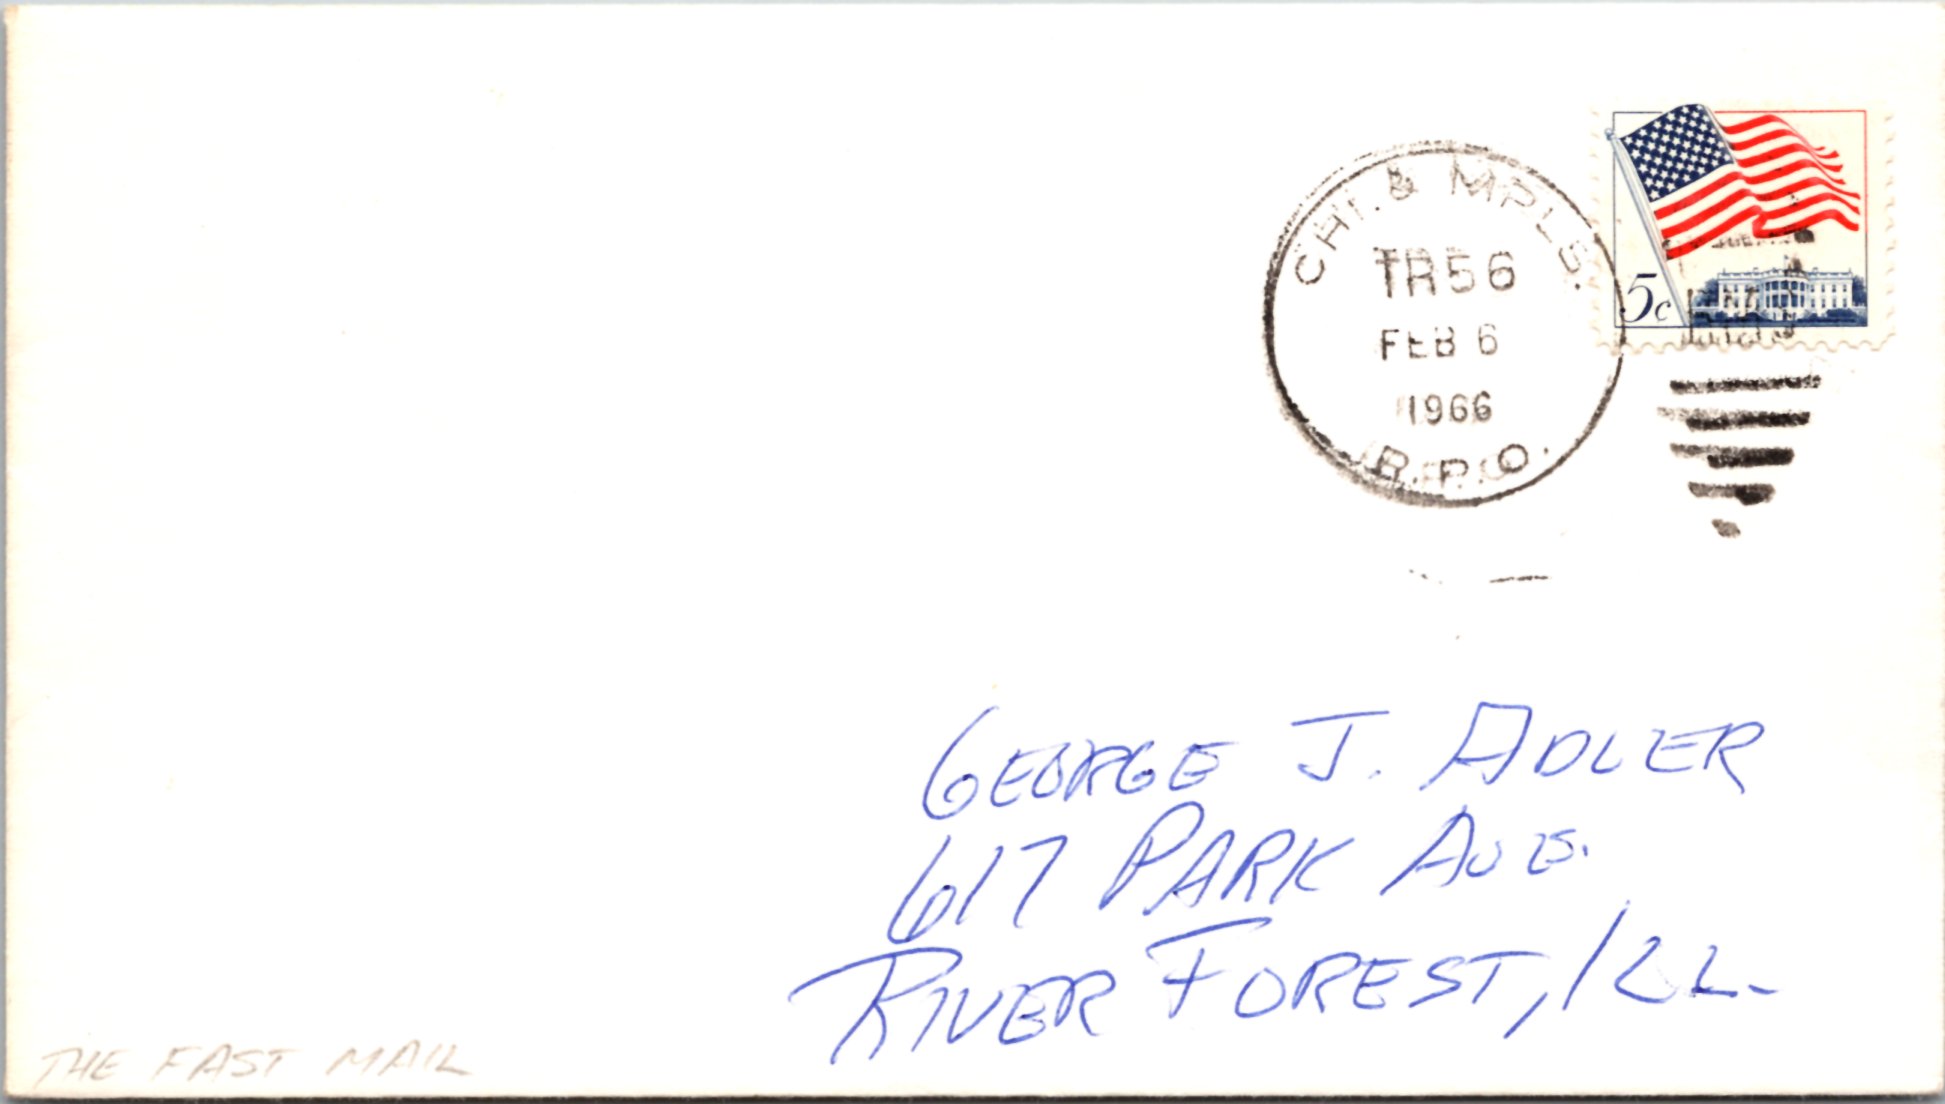 CHI. & MPLS.
TR 56
FEB 6
1966
R.P.O.
5c
GEORGE J. ADLER
617 PARK AVE.
RIVER FOREST, ILL.
THE FAST MAIL